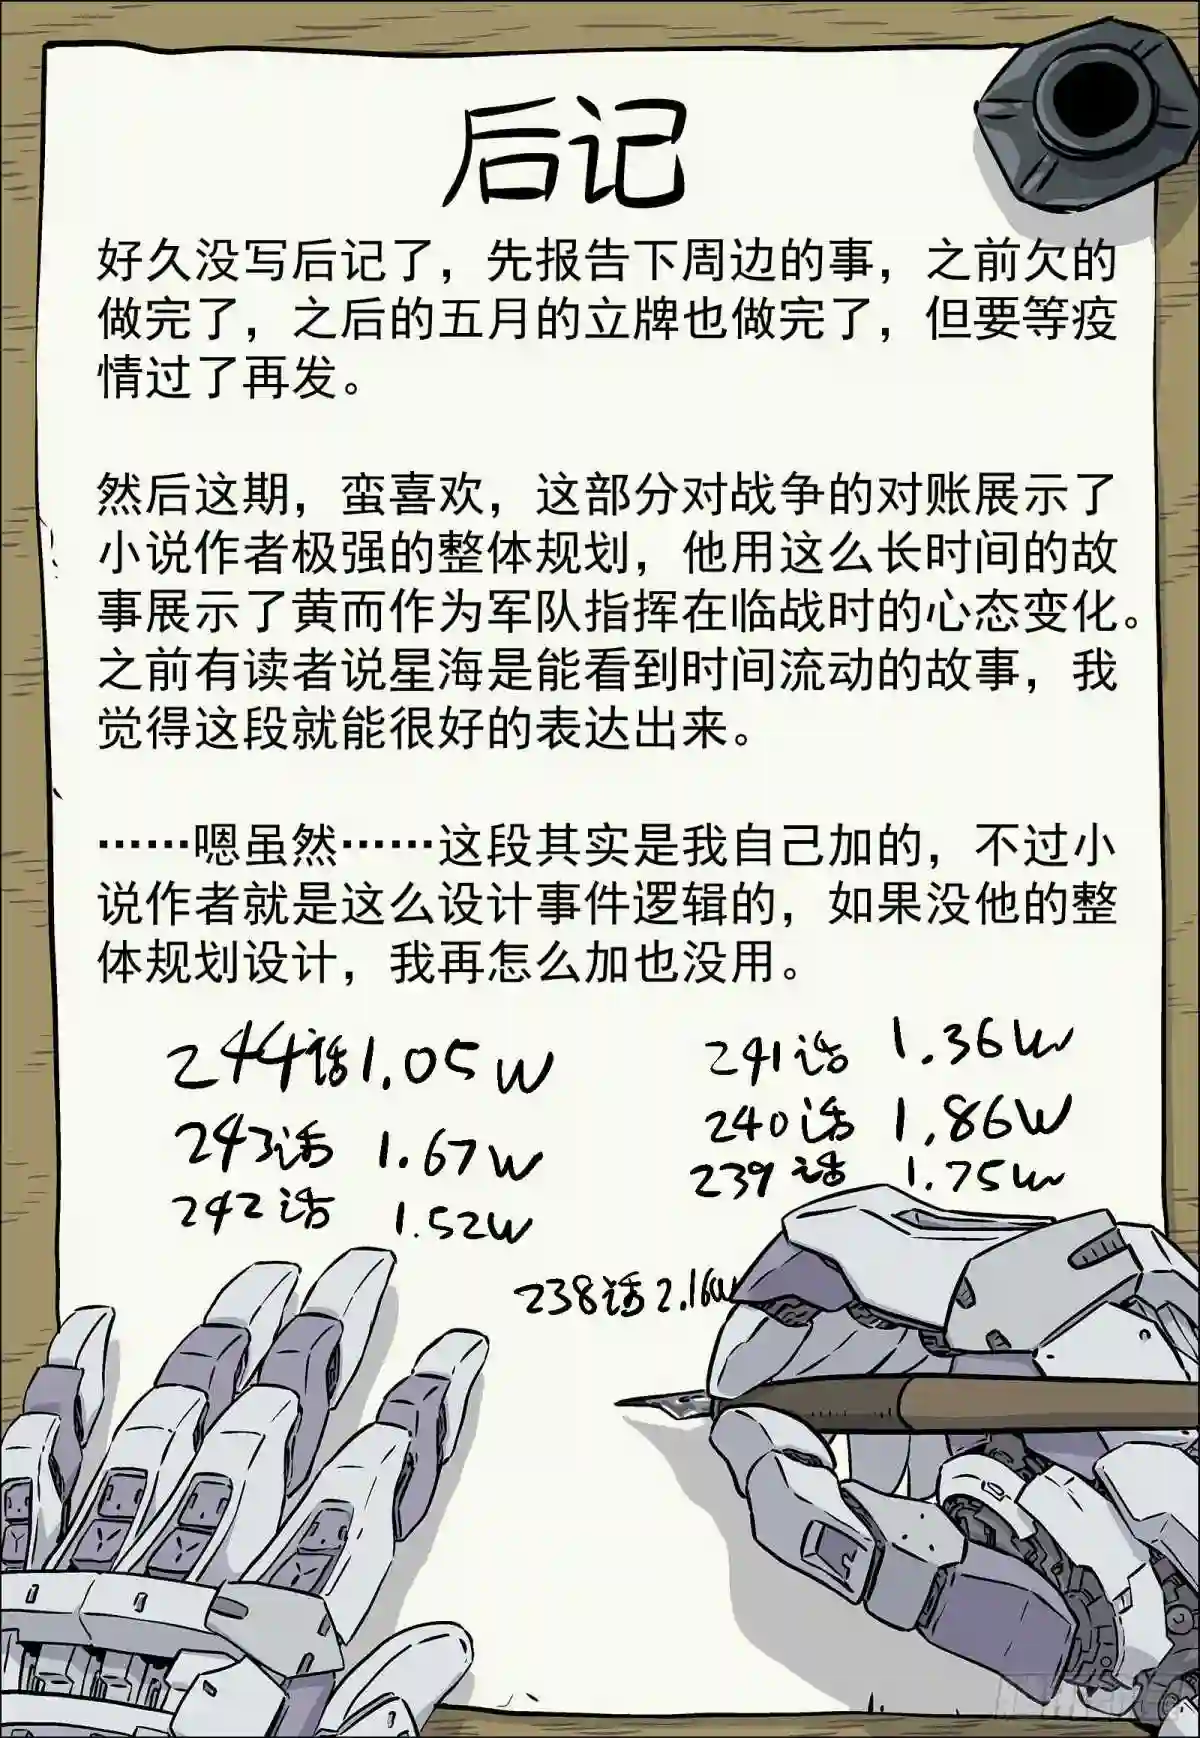 后记
好久没写后记了，先报告下周边的事，之前欠的
做完了，之后的五月的立牌也做完了，但要等疫
情过了再发。
然后这期，蛮喜欢，这部分对战争的对账展示了
小说作者极强的整体规划，他用这么长时间的故
事展示了黄而作为军队指挥在临战时的心态变化。
之前有读者说星海是能看到时间流动的故事，我
觉得这段就能很好的表达出来。
……嗯虽然……这段其实是我自己加的，不过小
说作者就是这么设计事件逻辑的，如果没他的整
体规划设计，我再怎么加也没用。
244话1.05W
243话 1.67W
242话 1.52W
241话 1.36W
240话 1.86W
239话 1.75W
238话 2.16W